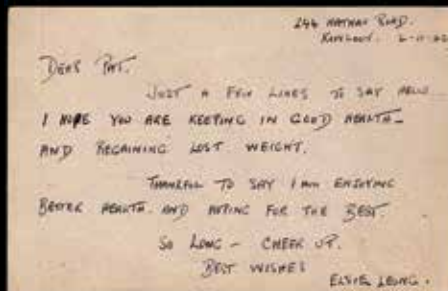 244 NATHAN ROAD.
KOWLOON. 6-11-62
DEAR PAT.
JUST A FEW LINES TO SAY HELLO
I HOPE YOU ARE KEEPING IN GOOD HEALTH -
AND REGAINING LOST WEIGHT.
THANKFUL TO SAY I AM ENJOYING
BETTER HEALTH. AND HOPING FOR THE BEST.
SO LONG - CHEER UP.
BEST WISHES
ELSIE LEUNG.